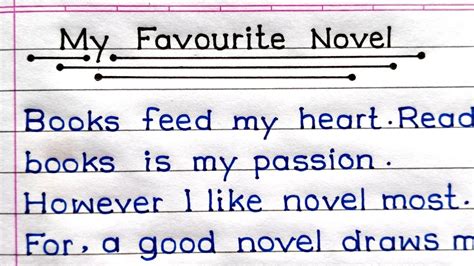 My Favourite Novel
Books feed my heart. Read
books is my passion.
However I like novel most.
For, a good novel draws m